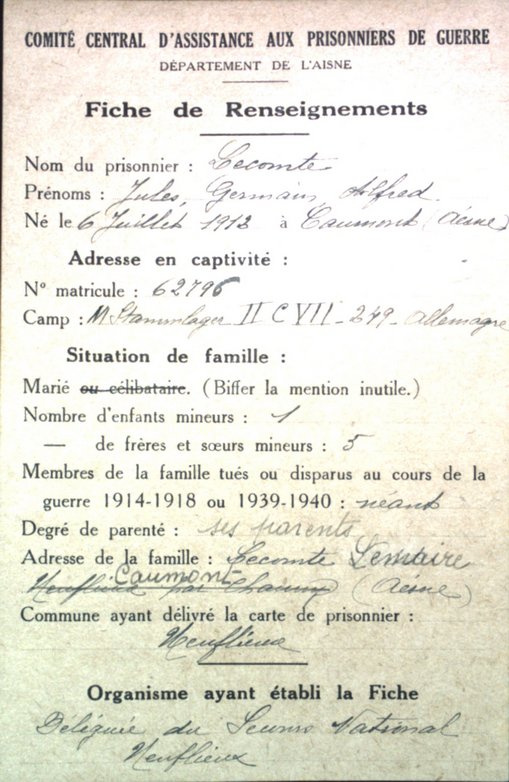 COMITÉ CENTRAL D'ASSISTANCE AUX PRISONNIERS DE GUERRE
DÉPARTEMENT DE L'AISNE
Fiche de Renseignements
Nom du prisonnier : Lecomte
Prénoms : Jules, Germain, Alfred.
Né le 6 Juillet 1912 à Caumont (Aisne)
Adresse en captivité :
N° matricule : 62796
Camp : M Stammlager II C VII - 249 - Allemagne
Situation de famille :
Marié ou célibataire. (Biffer la mention inutile.)
Nombre d'enfants mineurs : 1
— de frères et sœurs mineurs : 5
Membres de la famille tués ou disparus au cours de la
guerre 1914-1918 ou 1939-1940 : néant
Degré de parenté : ses parents
Adresse de la famille : Lecomte Lemaire
Caumont
Neuflieux par Chauny (Aisne)
Commune ayant délivré la carte de prisonnier :
Neuflieux
Organisme ayant établi la Fiche
Déléguée du Secours National
Neuflieux